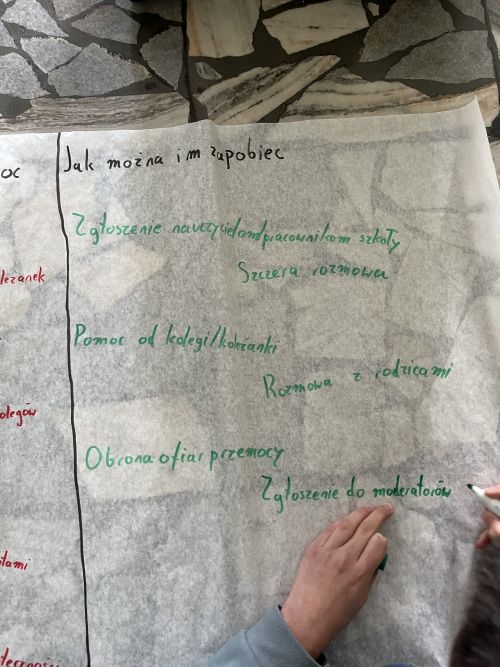 oc
Jak można im zapobiec
Zgłoszenie nauczycielom/pracownikom szkoły
leżanek
Szczera rozmowa
Pomoc od kolegi/koleżanki
Rozmowa z rodzicami
olegów
Obrona ofiar przemocy
Zgłoszenie do moderatorów